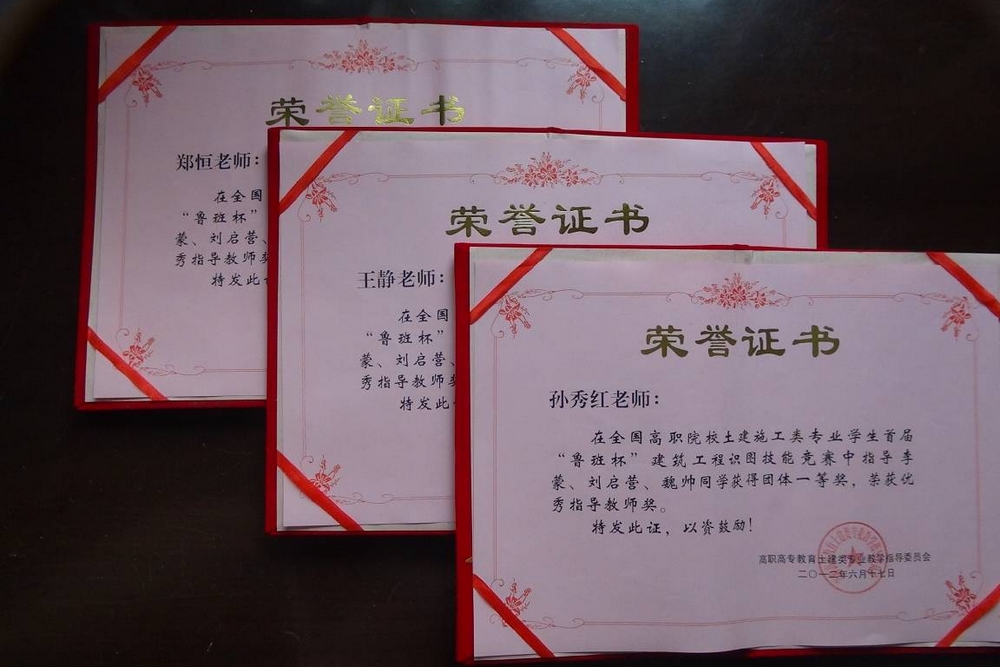 荣誉证书
郑恒老师：
在全国
“鲁班杯”
蒙、刘启营、
秀指导教师奖
特发此证
荣誉证书
王静老师：
在全国
“鲁班杯”
蒙、刘启营、
秀指导教师奖
特发此证
荣誉证书
孙秀红老师：
在全国高职院校土建施工类专业学生首届
“鲁班杯”建筑工程识图技能竞赛中指导李
蒙、刘启营、魏帅同学获得团体一等奖，荣获优
秀指导教师奖。
特发此证，以资鼓励！
高职高专教育土建类专业教学指导委员会
二〇一二年六月十七日